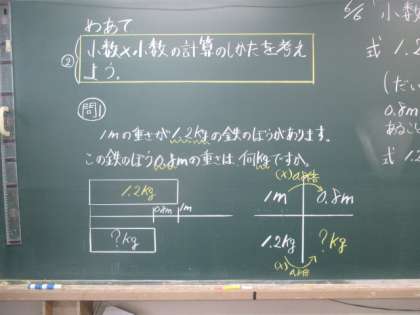 めあて
②
小数×小数の計算のしかたを考え
よう。
問1
1mの重さが1.2kgの鉄のぼうがあります。
この鉄のぼう0.8mの重さは何kgですか。
1.2kg
0.8m 1m
?kg
(×)0.8倍
1m 0.8m
1.2kg ?kg
(×)0.8倍
6/6 「小数
式 1.2
(だい
0.8m
あるこ
式 1.2